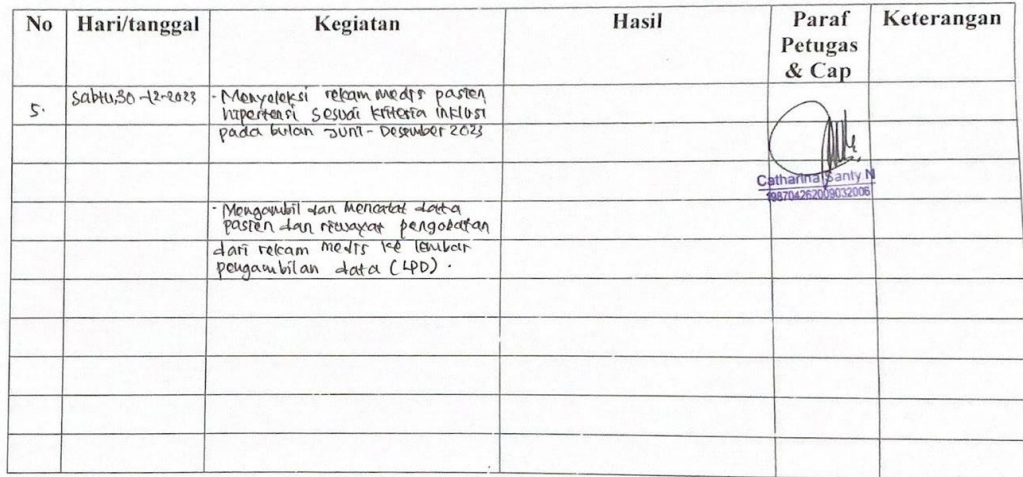 No Hari/tanggal Kegiatan Hasil Paraf Petugas & Cap Keterangan
5. Sabtu,30-12-2023 - Menyeleksi rekam medis pasien
hipertensi sesuai kriteria inklusi
pada bulan Juni - Desember 2023
Catharina Santy N
198704262009032006
- Mengambil dan mencatat data
pasien dan riwayat pengobatan
dari rekam medis ke lembar
pengambilan data (LPD).